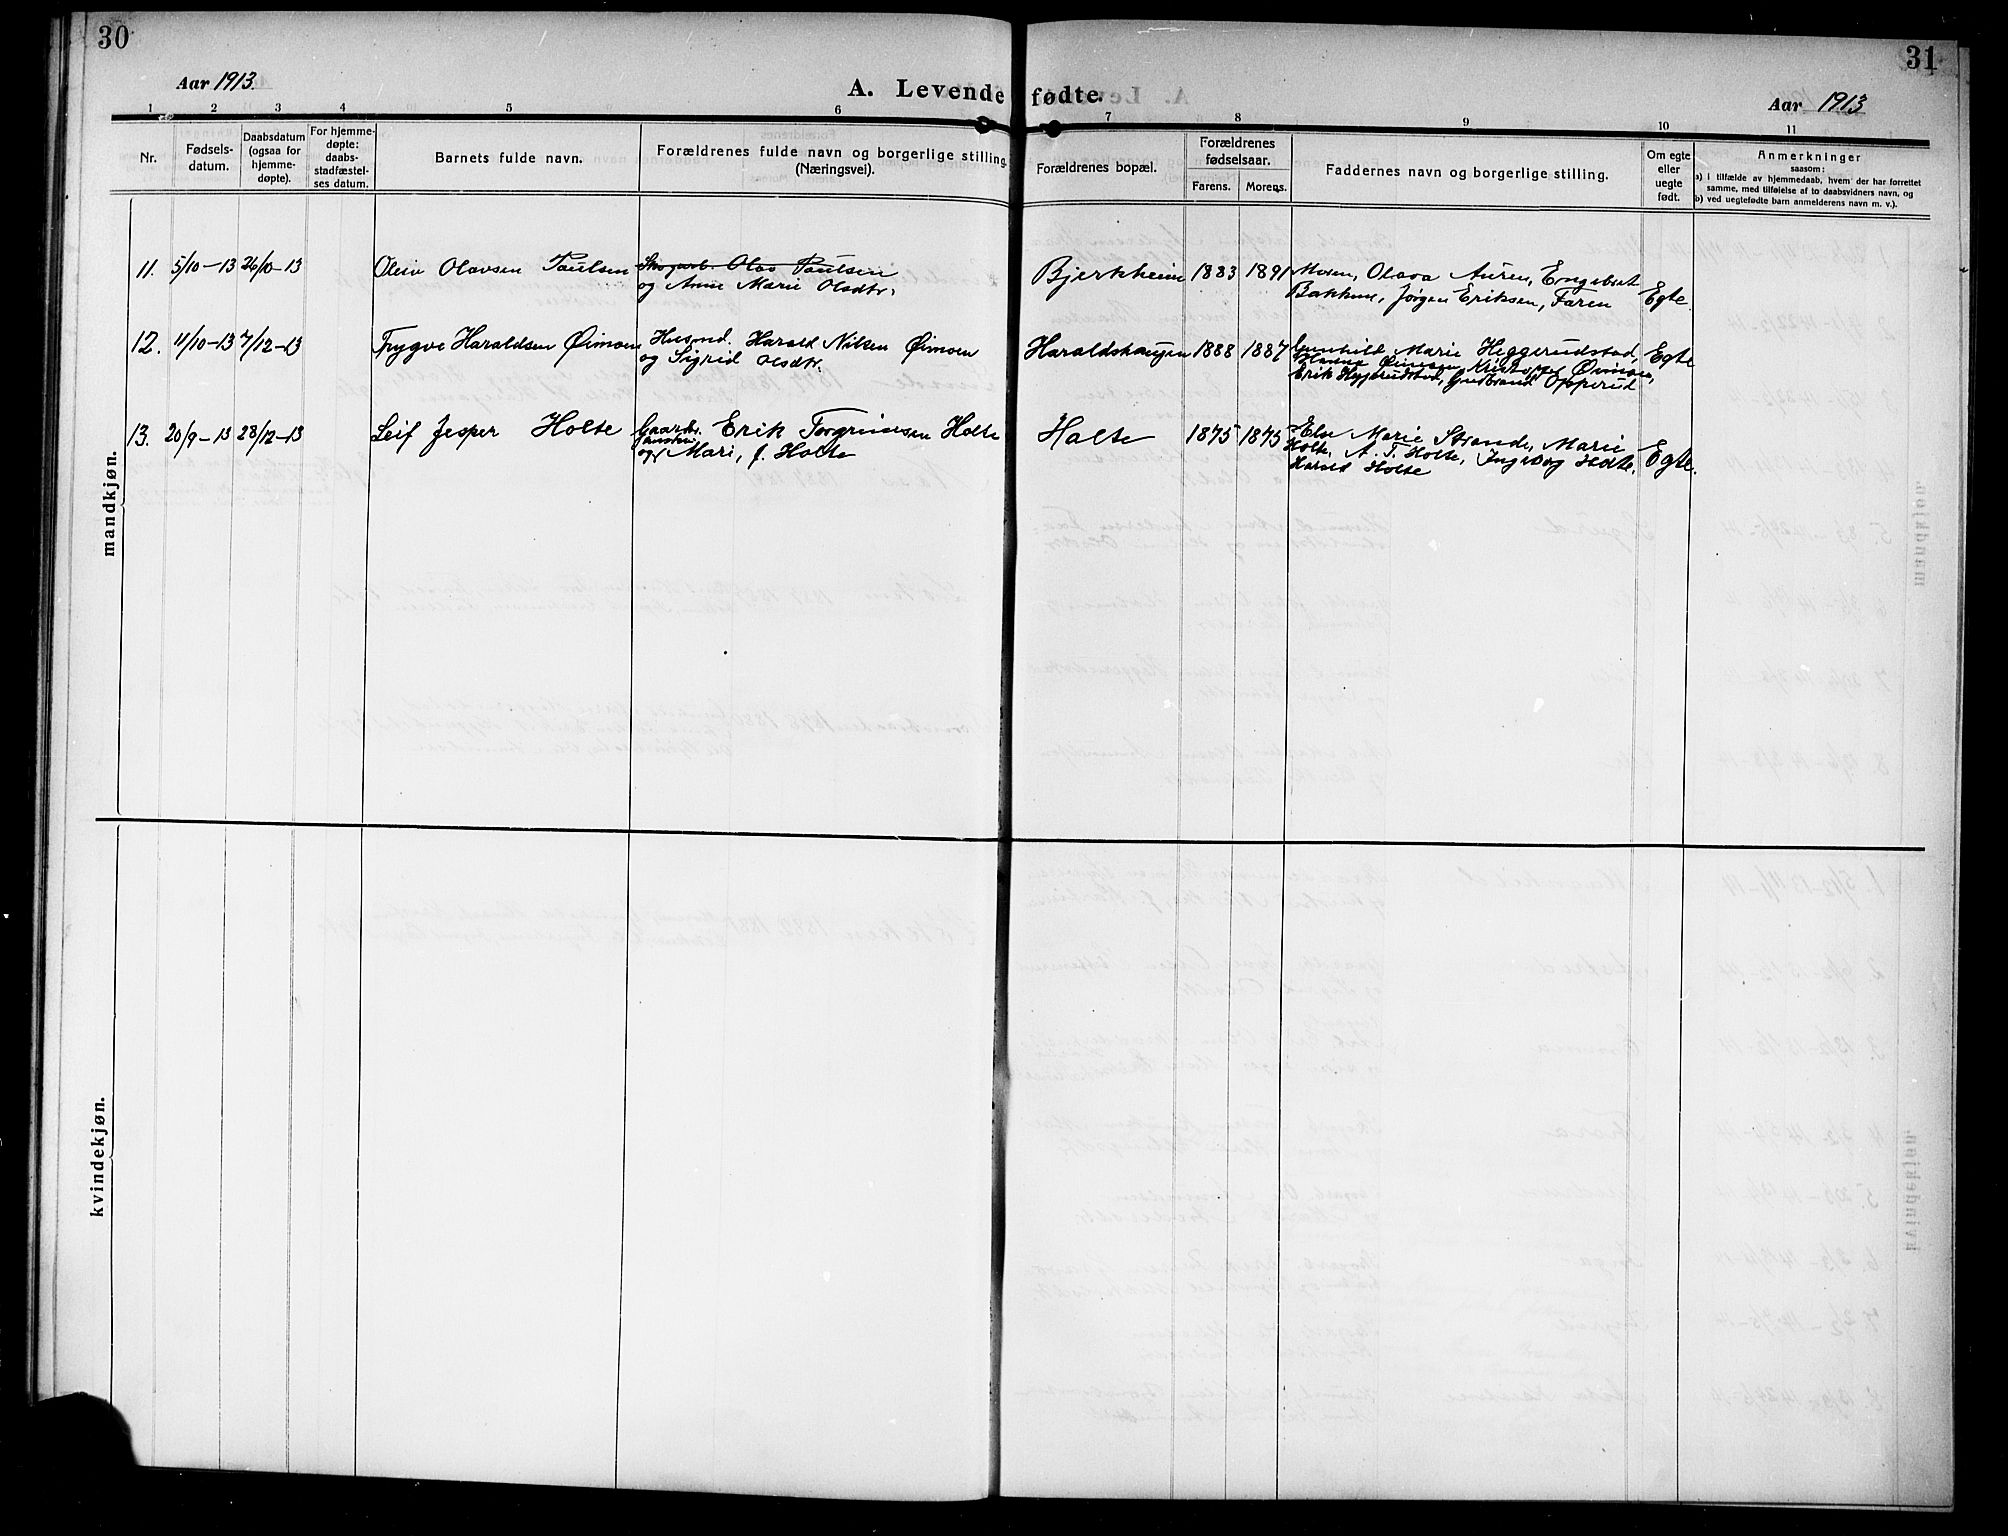 30
31
Aar 1913.
A. Levende fødte.
Aar 1913
1 2 3 4 5 6 7 8 9 10 11
Nr.
Fødsels-
datum.
Daabsdatum
(ogsaa for
hjemme-
døpte).
For hjemme-
døpte:
daabs-
stadfæstel-
ses datum.
Barnets fulde navn.
Forældrenes fulde navn og borgerlige stilling.
(Næringsvei).
Forældrenes bopæl.
Forældrenes
fødselsaar.
Farens. Morens.
Faddernes navn og borgerlige stilling.
Om egte
eller
uegte
født.
Anmerkninger
saasom:
a) i tilfælde av hjemmedaab, hvem der har forrettet
samme, med tilføielse af to daabsvidners navn, og
b) ved uegtefødte barn anmelderens navn m. v.).
mandkjøn.
11. 5/10-13 26/10-13 Oleiv Olavsen Paulsen Skogarb. Olav Paulsen
og Anne Marie Olsdtr.
Bjerkheim 1883 1891 Moren, Olava Auren, Engebret
Bakkene, Jørgen Eriksen, Faren Egte
12. 11/10-13 7/12-13 Trygve Haraldsen Øimoen Husmd. Harald Nilsen Øimoen
og Sigrid Olsdtr.
Haraldshaugen 1888 1887 Gunhild Marie Heggerudstad,
Øimoen, Kristoffer Øimoen,
Erik Heggerudstad, Gudbrand Opperud
Egte
13. 20/9-13 28/12-13 Leif Jesper Holte Gaardbr. Erik Torgrimsen Holte
og Mari, f. Holte
Holte 1875 1875 Else Marie Strande, Marie
Holte, A. T. Holte, Ingeborg Holte,
Harald Holte
Egte.
kvindekjøn.